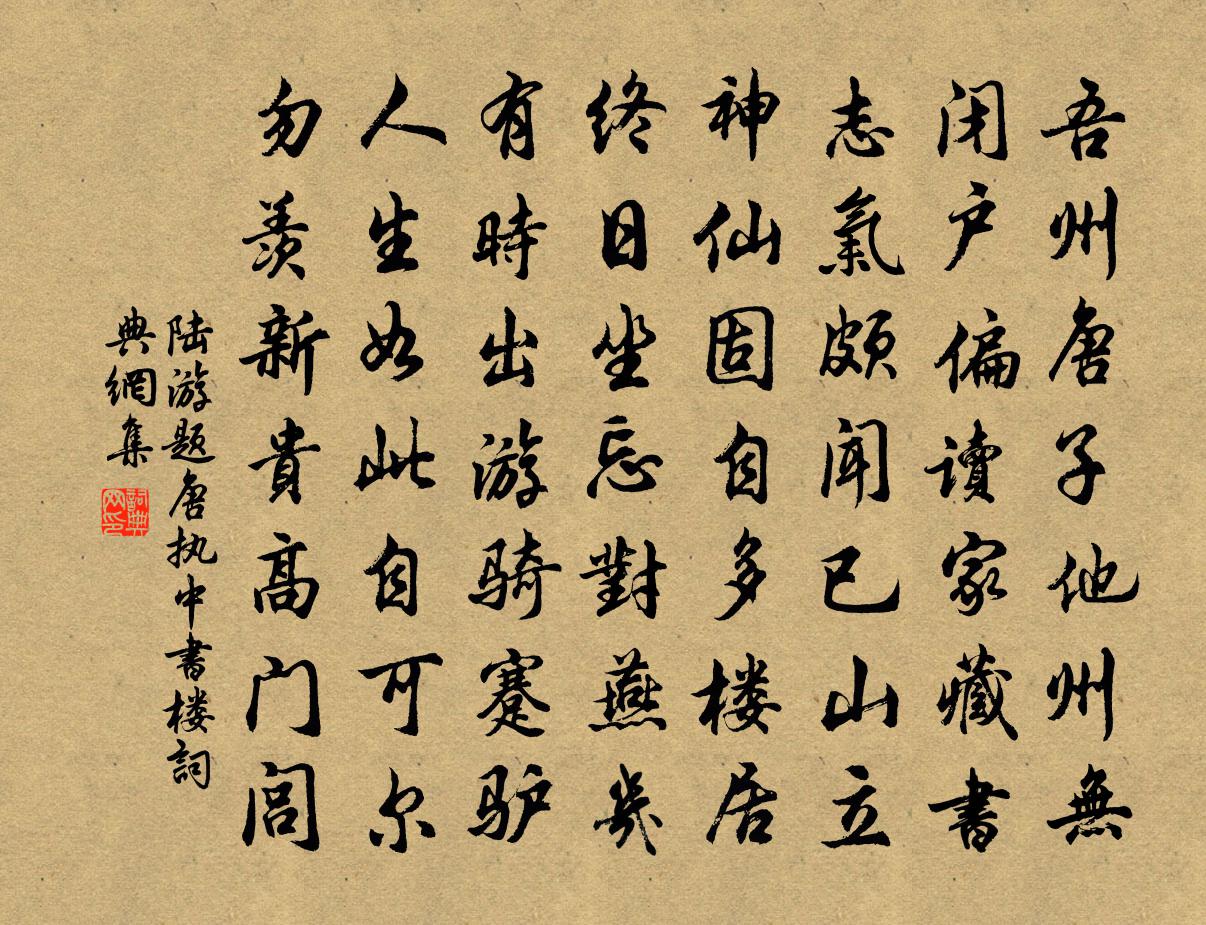 吾州唐子他州無
闭户偏讀家藏書
志氣頗闻已山立
神仙固自多楼居
终日坐忘對燕几
有時出游骑蹇驴
人生如此自可尔
勿羡新貴高门闾
陆游题唐执中書楼詞
典網集
詞典
网印